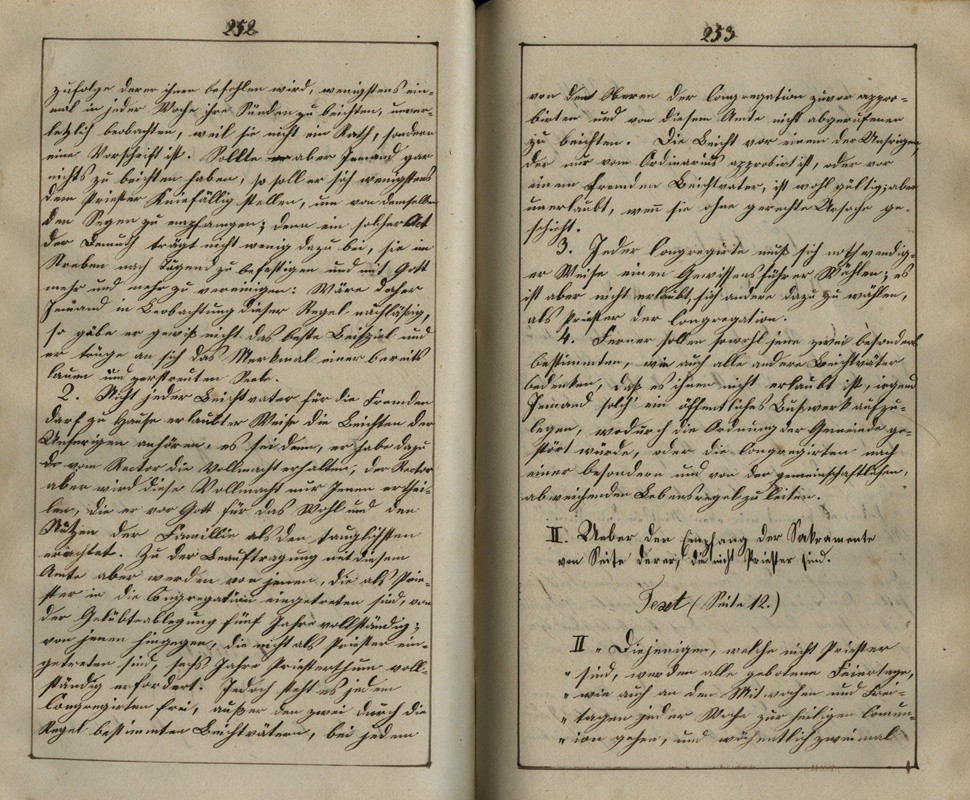 252
zufolge derer ihnen befohlen wird, wenigstens ein-
mal in jeder Woche ihre Sünden zu beichten, unver-
letzlich beobachten, weil sie nicht ein Rath, sondern
eine Vorschrift ist. Sollte aber Jemand gar
nichts zu beichten haben, so soll er sich wenigstens
dem Priester kniefällig stellen, um von demselben
den Segen zu empfangen; denn ein solcher Akt
der Demuth trägt nicht wenig dazu bei, sie im
Streben nach Tugend zu befestigen und mit Gott
mehr und mehr zu vereinigen: Wäre daher
Jemand in Beobachtung dieser Regel nachläßig,
so gäbe er gewiß nicht das beste Beispiel und
er trüge an sich das Merkmal einer bereits
lauen und zerstreuten Seele.
2. Nicht jeder Beichtvater für die Fremden
darf zu Hause erlaubter Weise die Beichten der
Unsrigen anhören, es sei denn, er habe dazu
vom Rector die Vollmacht erhalten; der Rector
aber wird diese Vollmacht nur Jenen erthei-
len, die er vor Gott für das Wohl und den
Nutzen der Familie als den tauglichsten
erachtet. Zu der Beauftragung mit diesem
Amte aber werden von jenen, die als Prie-
ster in die Congregation eingetreten sind, von
der Gelübdeablegung fünf Jahre vollständig;
von jenen hingegen, die nicht als Priester ein-
getreten sind, sechs Jahre Priesterthum voll-
ständig erfordert. Jedoch steht es jedem
Congregirten frei, außer den zwei durch die
Regel bestimmten Beichtvätern, bei jedem
253
von den Obern der Congregation zuvor appro-
birten und von diesem Amte nicht abgerufenen
zu beichten. Die Beicht vor einem der Unsrigen,
der nur vom Ordinarius approbirt ist, oder vor
einem fremden Beichtvater, ist wohl gültig, aber
unerlaubt, wenn sie ohne gerechte Ursache ge-
schieht.
3. Jeder Congregirte muß sich nothwendig-
er Weise einen Gewissensführer wählen; es
ist aber nicht erlaubt, sich andere dazu zu wählen,
als Priester der Congregation.
4. Ferner sollen sowohl jene zwei besonders
bestimmten, wie auch alle andern Beichtväter
bedenken, daß es ihnen nicht erlaubt ist, irgend
Jemand solch' ein öffentliches Bußwerk aufzu-
legen, wodurch die Ordnung der Gemeinde ge-
stört würde, oder die Congregirten nach
einer besondern und von der gemeinschaftlichen,
abweichenden Lebensregel zu leiten.
II. Ueber den Empfang der Sakramente
von Seite derer, die nicht Priester sind.
Text (Seite 12.)
II „ Diejenigen, welche nicht Priester
„ sind, werden alle gebotene Feiertage,
„ wie auch an den Mittwochen und Frei-
„ tagen jeder Woche zur heiligen Comun-
„ ion gehen, und wöchentlich zweimal